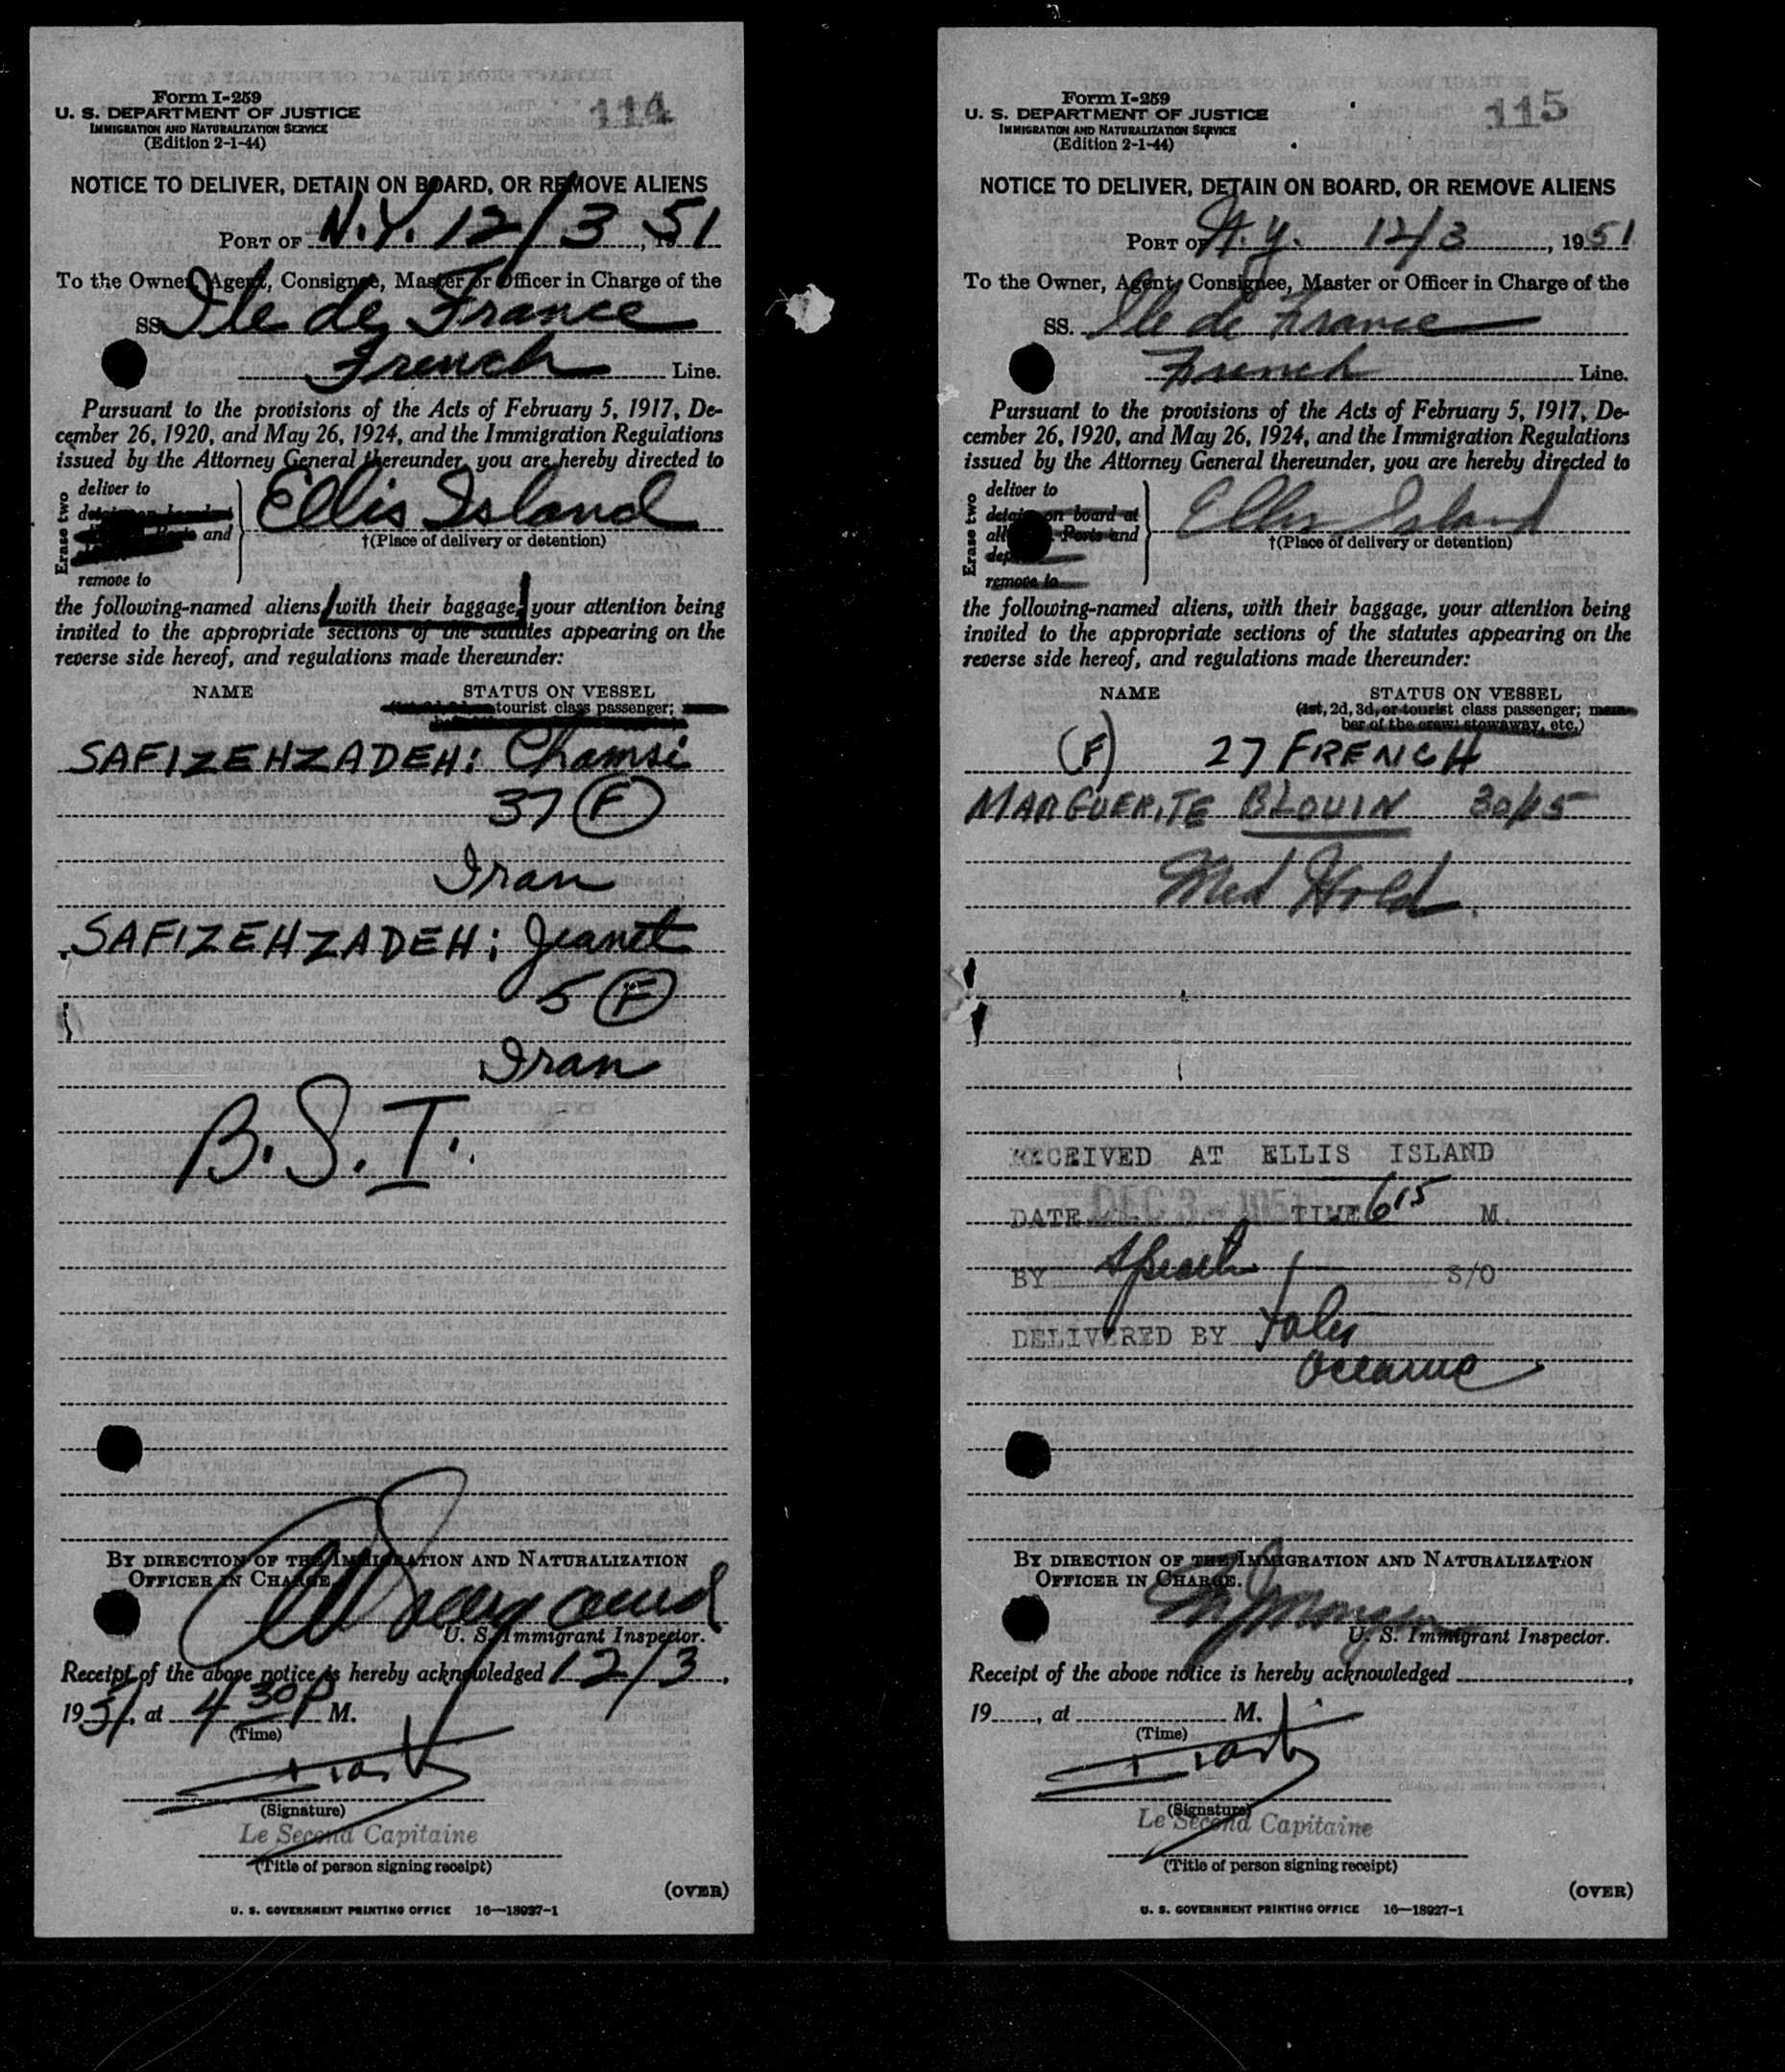 Form I-259
U. S. DEPARTMENT OF JUSTICE
IMMIGRATION AND NATURALIZATION SERVICE
(Edition 2-1-44)
114
NOTICE TO DELIVER, DETAIN ON BOARD, OR REMOVE ALIENS
PORT OF N.Y. 12/3, 1951
To the Owner, Agent, Consignee, Master or Officer in Charge of the
SS. Ile de France
French Line.
Pursuant to the provisions of the Acts of February 5, 1917, De-
cember 26, 1920, and May 26, 1924, and the Immigration Regulations
issued by the Attorney General thereunder, you are hereby directed to
Erase two
deliver to
and
remove to
Ellis Island
†(Place of delivery or detention)
the following-named aliens, with their baggage, your attention being
invited to the appropriate sections of the statutes appearing on the
reverse side hereof, and regulations made thereunder:
NAME STATUS ON VESSEL
tourist class passenger;
SAFIZEHZADEH: Chamsi
37 (F)
Iran
SAFIZEHZADEH: Jeanet
5 (F)
Iran
B.S.I.
BY DIRECTION OF THE IMMIGRATION AND NATURALIZATION
OFFICER IN CHARGE.
U. S. Immigrant Inspector.
Receipt of the above notice is hereby acknowledged 12/3,
1951, at 4 30 P M.
(Time)
(Signature)
Le Second Capitaine
(Title of person signing receipt)
(OVER)
U. S. GOVERNMENT PRINTING OFFICE 16—18927-1
Form I-259
U. S. DEPARTMENT OF JUSTICE
IMMIGRATION AND NATURALIZATION SERVICE
(Edition 2-1-44)
115
NOTICE TO DELIVER, DETAIN ON BOARD, OR REMOVE ALIENS
PORT OF N.Y. 12/3, 1951
To the Owner, Agent, Consignee, Master or Officer in Charge of the
SS. Ile de France
French Line.
Pursuant to the provisions of the Acts of February 5, 1917, De-
cember 26, 1920, and May 26, 1924, and the Immigration Regulations
issued by the Attorney General thereunder, you are hereby directed to
Erase two
deliver to
detain on board at
all Ports and
remove to
Ellis Island
†(Place of delivery or detention)
the following-named aliens, with their baggage, your attention being
invited to the appropriate sections of the statutes appearing on the
reverse side hereof, and regulations made thereunder:
NAME STATUS ON VESSEL
(1st, 2d, 3d, or tourist class passenger; mem-
ber of the crew; stowaway, etc.)
(F) 27 FRENCH
MARGUERITE BLOUIN 30/15
Med Hold.
RECEIVED AT ELLIS ISLAND
DATE DEC 3 - 1951 TIME 6 15 M.
BY S/O
DELIVERED BY
Oceanic
BY DIRECTION OF THE IMMIGRATION AND NATURALIZATION
OFFICER IN CHARGE.
U. S. Immigrant Inspector.
Receipt of the above notice is hereby acknowledged
19, at M.
(Time)
(Signature)
Le Second Capitaine
(Title of person signing receipt)
(OVER)
U. S. GOVERNMENT PRINTING OFFICE 16—18927-1